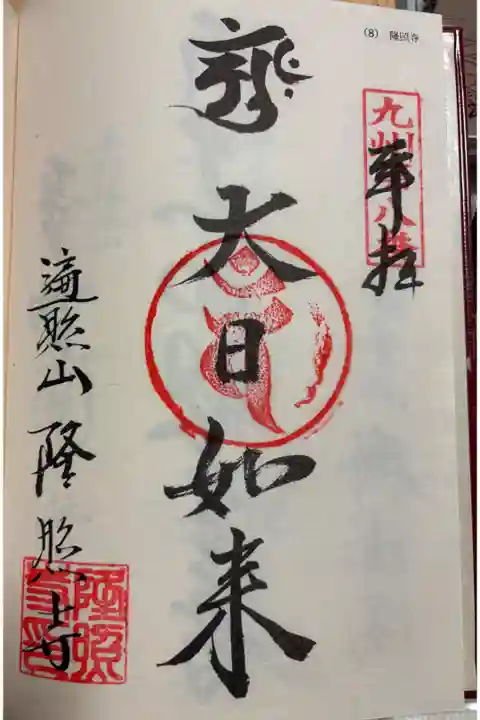 (8) 隆照寺
九州八十八
奉拝
大日如来
遍照山 隆照寺
隆照寺印